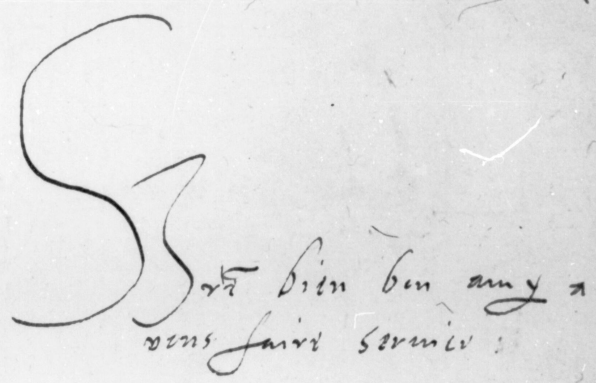 vr̃e bien bon amy a
vous faire service :